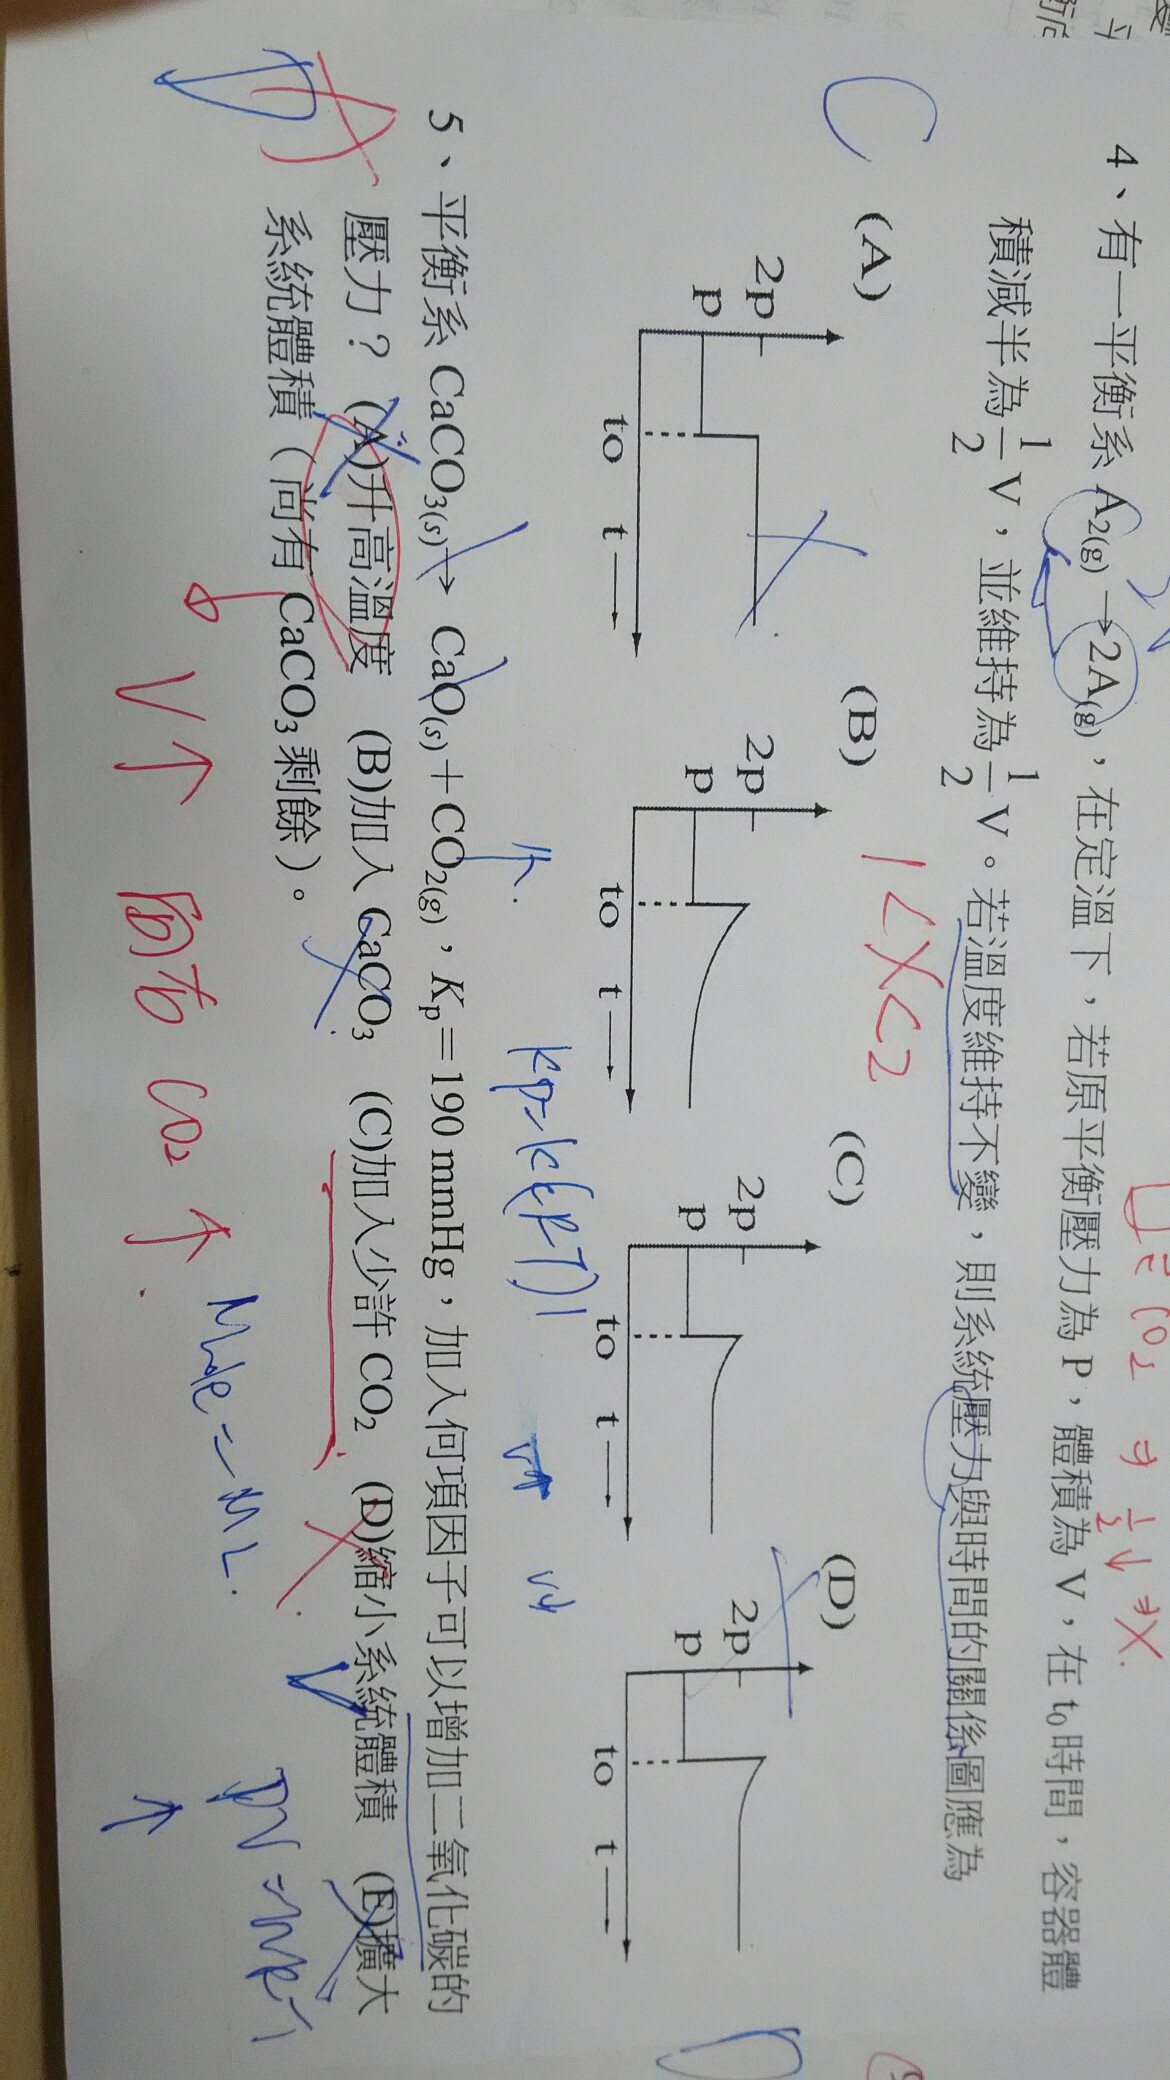 4、有一平衡系 A2(g) →2A(g),在定溫下,若原平衡壓力為 P,體積為 V,在 t0時間,容器體
積減半為 1/2 V,並維持為 1/2 V。若溫度維持不變,則系統壓力與時間的關係圖應為
C
1<X<2
CO2 ⇒ 1/2 ↓ ⇒X.
(A)
2p
p
to t
(B)
2p
p
to t
(C)
2p
p
to t
(D)
2p
p
to t
5、平衡系 CaCO3(s)→ CaO(s)+CO2(g),Kp=190 mmHg,加入何項因子可以增加二氧化碳的
壓力? (A)升高溫度 (B)加入 CaCO3 (C)加入少許 CO2 (D)縮小系統體積 (E)擴大
系統體積(尚有 CaCO3 剩餘)。
D
A
V↑ CO2 ↑